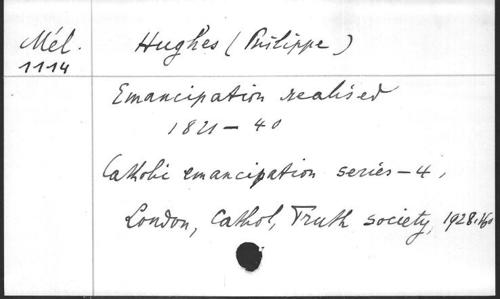 Mél. Hughes (Philippe)
1114
Emancipation realised
1821-40
Catholic emancipation series-4,
London, Cathol, Truth society, 1928,